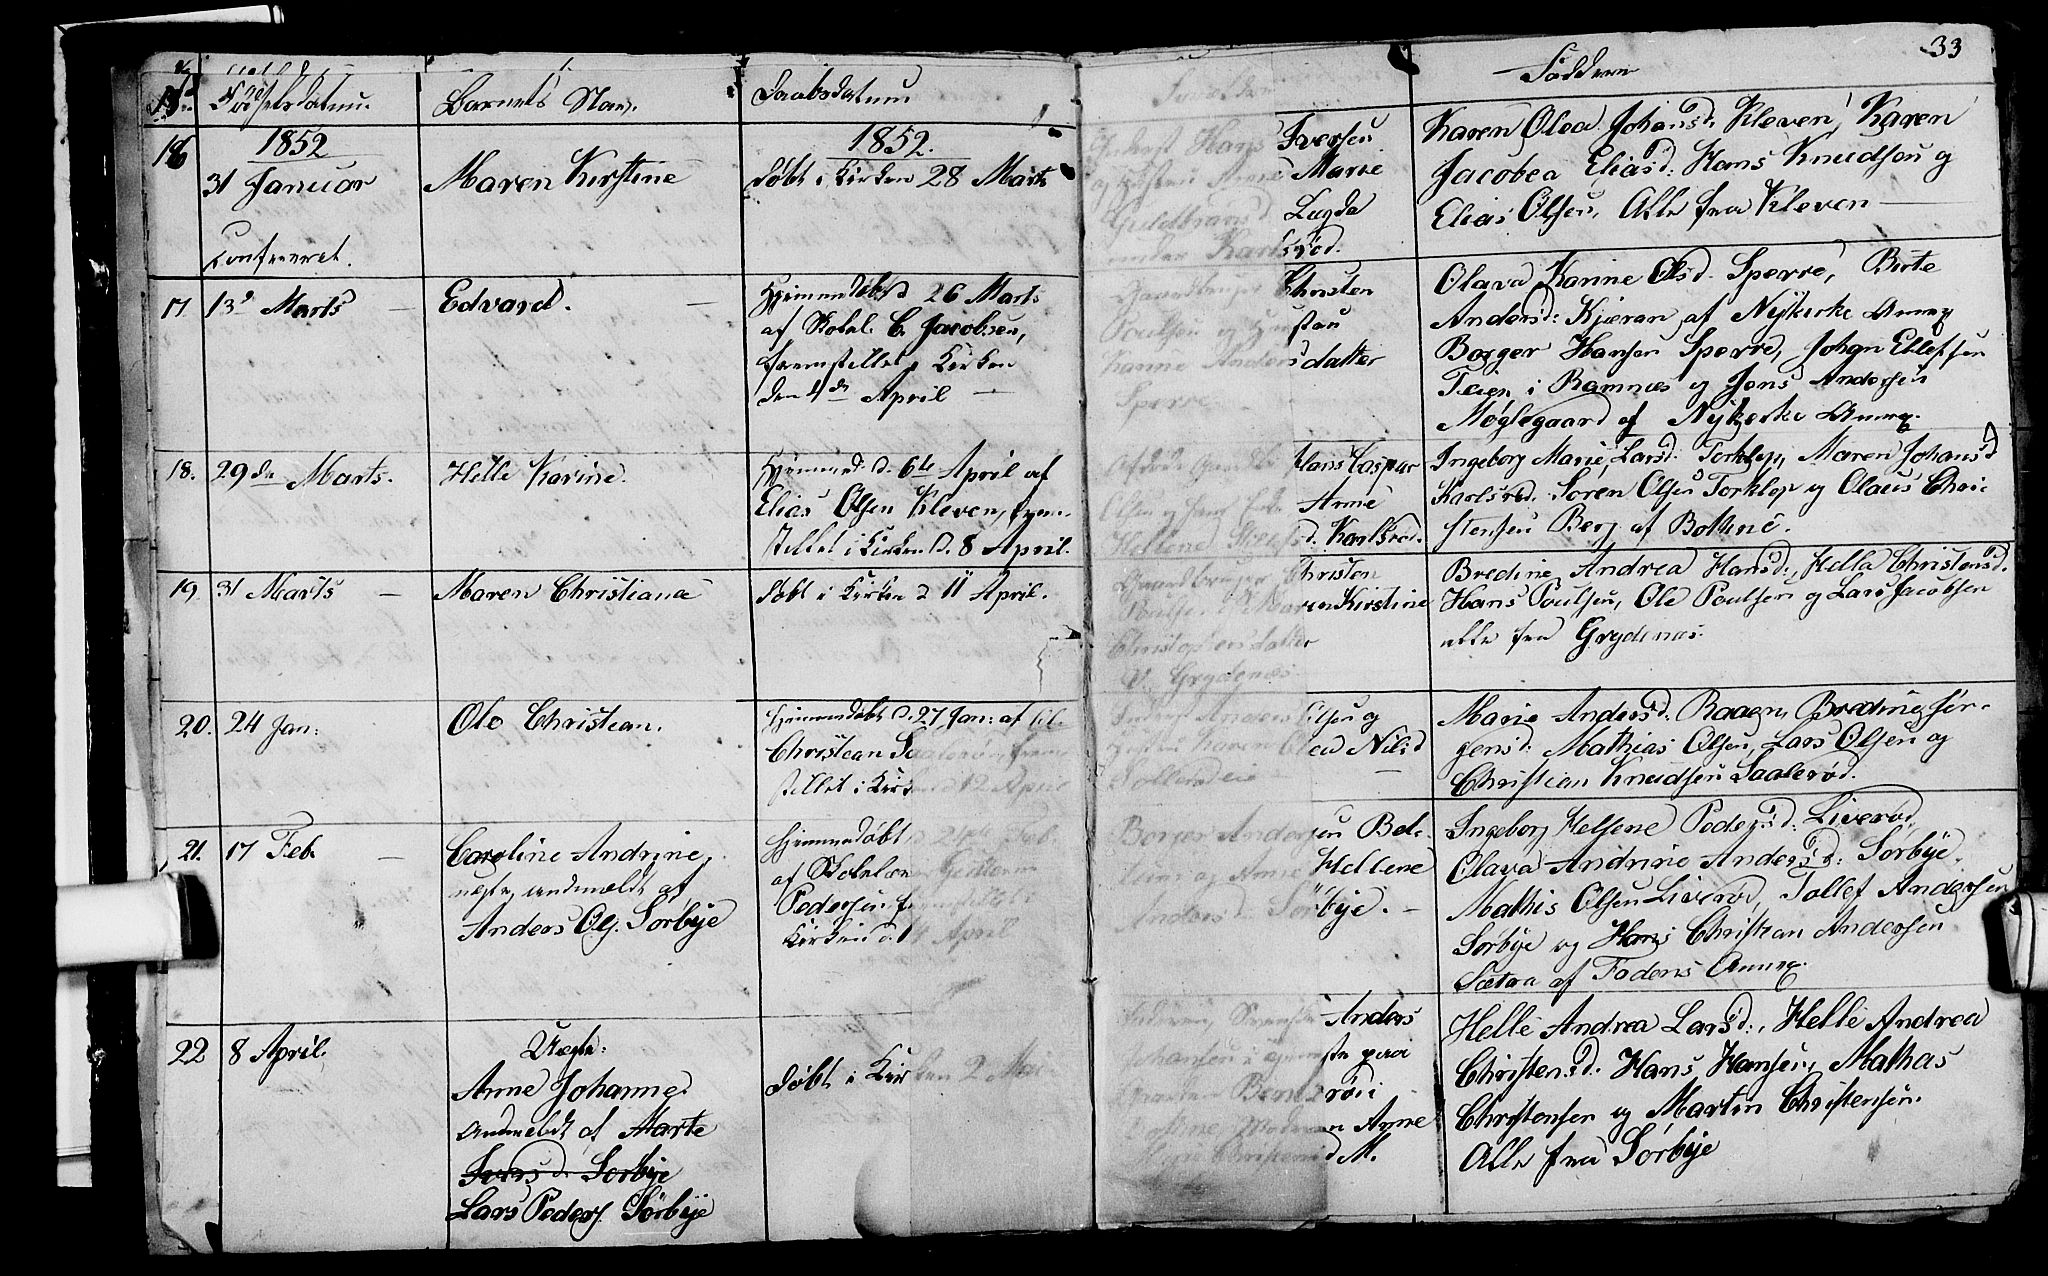 33
No Fødselsdatum. Barnets Navn. Daabsdatum Forældre Faddere
16 1852 31 Januar Confirmeret.
Maren Kirstine
1852. døbt i Kirken 28 Marts
Hans Iversen
Anne Marie
Guldbransd. Lugda
under Karlsrød.
Karen Olea Johansd. Kleven, Karen
Jacobea Eliasd: Hans Knudsen og
Elias Olsen, Alle fra Kleven
17 13de Marts
Edvard.
Hjemmedøbt d 26 Marts
af Skolel. C. Jacobsen,
fremstillet i Kirken
den 4de April
Gaardbruger Christen
Poulsen og Hustru
Karine Andersdatter
Sperre
Olava Karine Olsd. Sperre, Birte
Andersd: Kjæran af Nykirke Annex
Borger Hansen Sperre, Johan Ellefsen
Teien i Ramnæs og Jens Andersen
Møglegaard af Nykirke Annex.
18. 29de Marts.
Helle Karine.
Hjemmed: d. 6te April af
Elias Olsen Kleven, frem-
stillet i Kirken d. 8 April.
Hans Caspar
Olsen Anne
Hellene Karlsrød.
Ingeborg Marie Larsd. Torklop, Maren Johansd
Karlsrød. Soren Olsen Torklop og Olaus Chri-
stensen Berg af Bothne.
19 31 Marts
Maren Christiane
døbt i Kirken d 11 April.
Gaardbruger Christen
Poulsen Maren Kirstine
Christophersdatter
Grydenæs
Bredine Andrea Hansd., Hella Christensd.
Hans Poulsen, Ole Poulsen og Lars Jacobsen
alle fra Grydenæs.
20. 24 Jan:
Ole Christian.
Hjemmedøbt d. 27 Jan: af
Christian Saalerød, frem
stillet i Kirken d 12 April
Anders Olsen og
Karen Nilsd
Sollerødeie
Marie Andersd. Raaen, Bredine Jør-
gensd: Mathias Olsen, Lars Olsen og
Christian Knudsen Saalerød.
21. 17 Feb.
Caroline Andrine,
uægte, anmeldt af
Anders Ols. Sorbye
Hjemmedøbt d 24de Feb
af Skolelærer
Pedersen fremstillet i
Kirken d. 4 April
Borger Andersen Bek-
og Anne Hellene
Andersd. Sørbye.
Ingeborg Helene Pedersd: Liverød,
Olava Andrine Andersd: Sorbye.
Mathis Olsen Liverød, Tollef Andersen
Sorbye og Hans Christian Andersen
Sætra af Fodens Annex.
22 8 April.
Uægte:
Anne Johanne
Anmeldt af Marte
Iversd. Sorbye
Lars Peders. Sørbye
døbt i Kirken 2 Mai
Svenske Anders
Johansen i
Anne
M.
Helle Andrea Larsd., Helle Andrea
Christensd. Hans Hansen, Mathias
Christensen og Martin Christensen.
Alle fra Sørbye